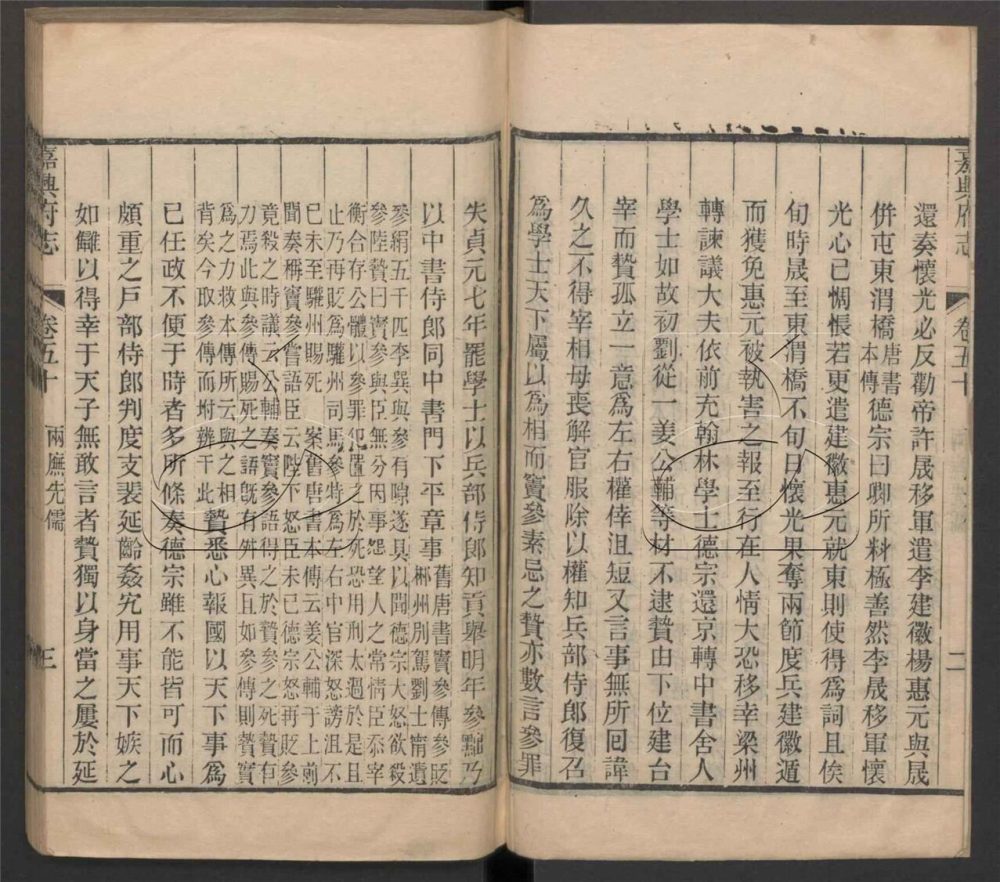 嘉興府志 卷五十 二
還奏懷光必反勸帝許晟移軍遣李建徽楊惠元與晟
併屯東渭橋唐書本傳德宗曰卿所料極善然李晟移軍懷
光心已惆悵若更遣建徽惠元就東則使得爲詞且俟
旬時晟至東渭橋不旬日懷光果奪兩節度兵建徽遁
而獲免惠元被執害之報至行在人情大恐移幸梁州
轉諫議大夫依前充翰林學士德宗還京轉中書舍人
學士如故初劉從一姜公輔等材不逮贄由下位建台
宰而贄孤立一意爲左右權倖沮短又言事無所回諱
久之不得宰相母喪解官服除以權知兵部侍郎復召
爲學士天下屬以爲相而竇參素忌之贄亦數言參罪
失貞元七年罷學士以兵部侍郎知貢舉明年參黜乃
以中書侍郎同中書門下平章事舊唐書竇參傳參貶
郴州別駕劉士甯遺
參絹五千匹李巽與參有隙遂具以聞德宗大怒欲殺
參陸贄曰竇參與臣無分因事怨望人之常情臣忝宰
衡合存公體以參罪犯置之於死恐用刑太過於是且
止乃再貶爲驩州司馬參特爲左右中官深怒謗沮不
已未至驩州賜死 案舊唐書本傳云姜公輔于上前
聞奏稱竇參嘗語臣云陛下怒臣未已德宗怒再貶參
竟殺之時議云公輔奏竇參語得之於贄參之死贄有
力焉此與參傳賜死之語旣有舛異且如參傳則贄實
爲之力救本傳所云與之相
背矣今取參傳而坿辨于此贄悉心報國以天下事爲
已任政不便于時者多所條奏德宗雖不能皆可而心
頗重之戶部侍郎判度支裴延齡姦宄用事天下嫉之
如讎以得幸于天子無敢言者贄獨以身當之屢於延
嘉興府志 卷五十 兩廡先儒 三